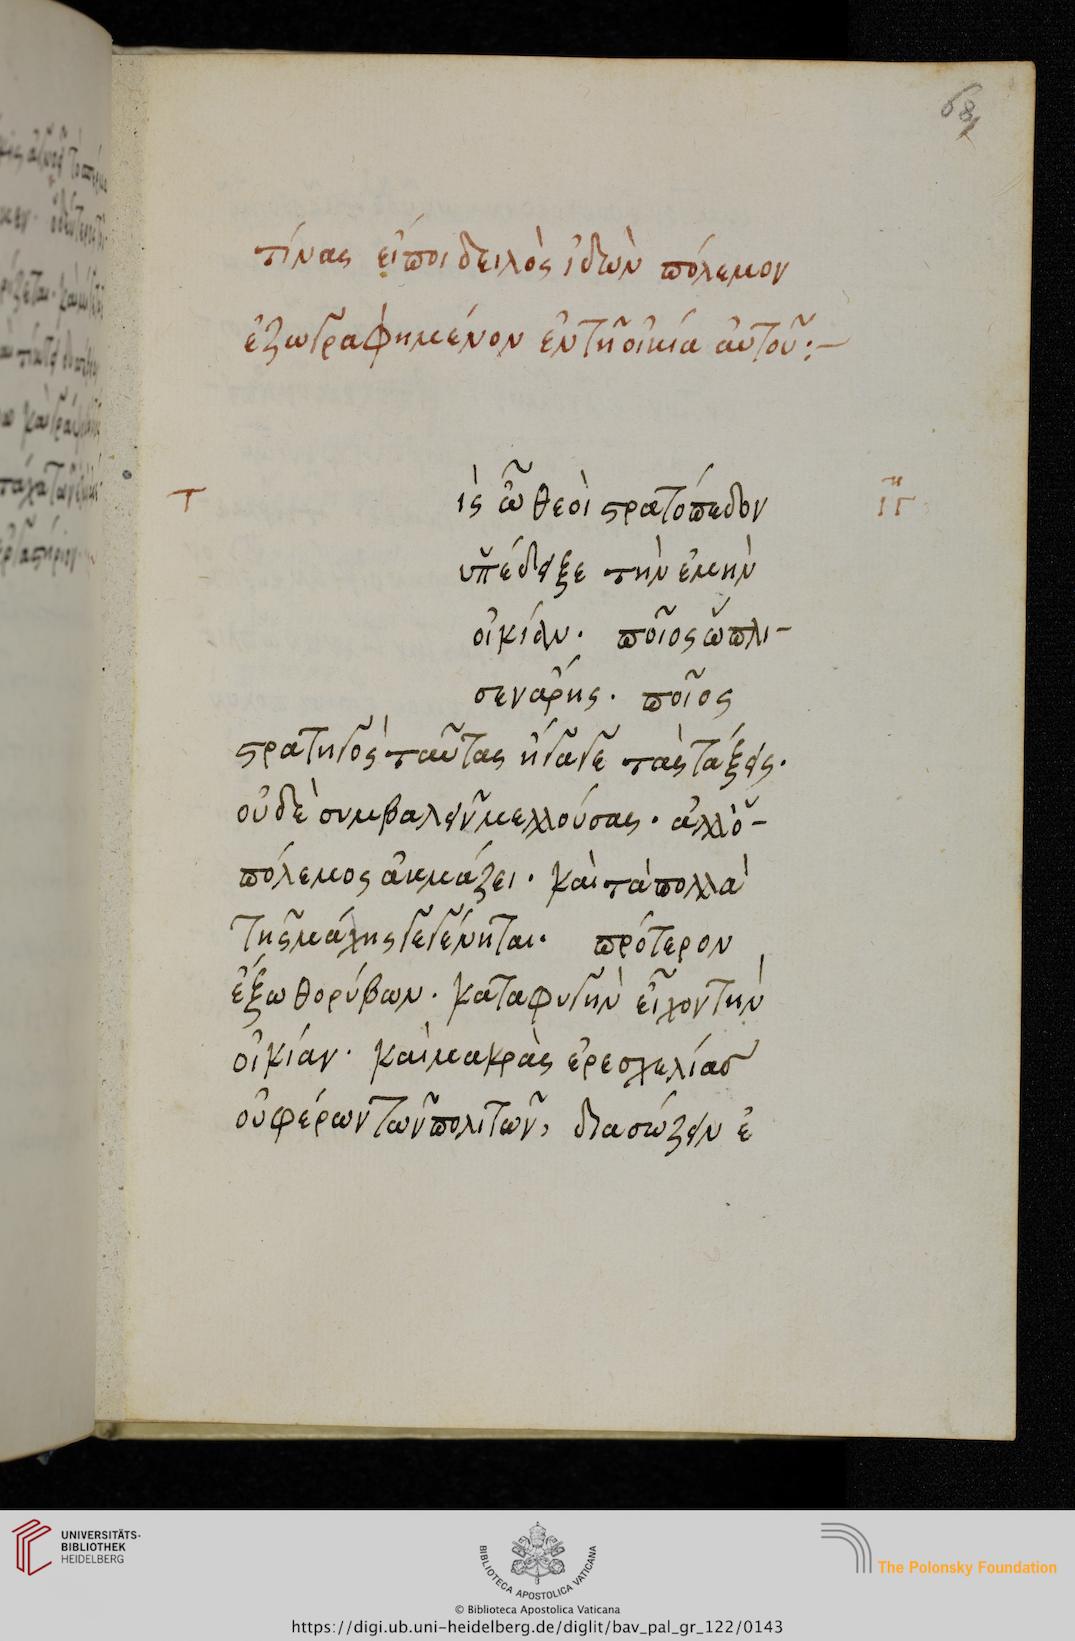 68
τίνας εἴποι δειλὸς ἰδὼν πόλεμον
ἐζωγραφημένον ἐν τῆ οἰκία αὐτοῦ:—
τ
ις ὦ θεοὶ στρατόπεδον
ὑπέδειξε τὴν ἐμὴν
οἰκίαν. ποῖος ὥπλι-
σεν ἄρης. ποῖος
στρατηγὸς ταύτας ἤγαγε τὰς τάξεις.
οὐδὲ συμβαλεῖν μελλούσας. ἀλλ' ὁ
πόλεμος ἀκμάζει. καὶ τὰ πολλὰ
τῆς μάχης γεγένηται. πρότερον
ἔξω θορύβων. καταφυγὴν εἶχον τὴν
οἰκίαν. καὶ μακρὰς ἐρεσχελίας
οὐ φέρων τῶν πολιτῶν, διασώζειν ἐ
UNIVERSITÄTS-
BIBLIOTHEK
HEIDELBERG
BIBLIOTECA APOSTOLICA VATICANA
The Polonsky Foundation
© Biblioteca Apostolica Vaticana
https://digi.ub.uni-heidelberg.de/diglit/bav_pal_gr_122/0143